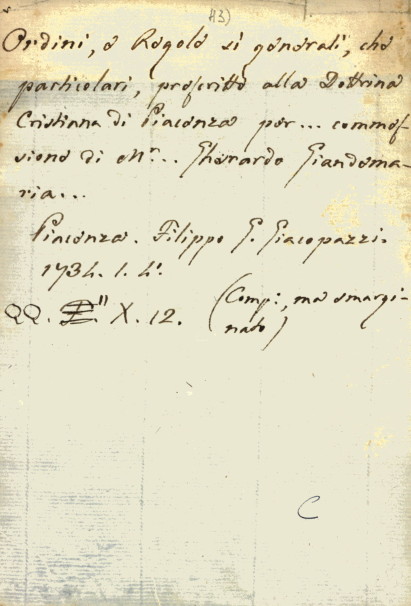 43)
Ordini, e Regole sì generali, che
particolari, prescritte alla Dottrina
Cristiana di Piacenza per... commes-
sione di Mr... Gherardo Giandema-
ria...
Piacenza. Filippo G. Giacopazzi.
1734. 1. 4°.
QQ. " X. 12. (Comp:, ma smargi-
nato)
C